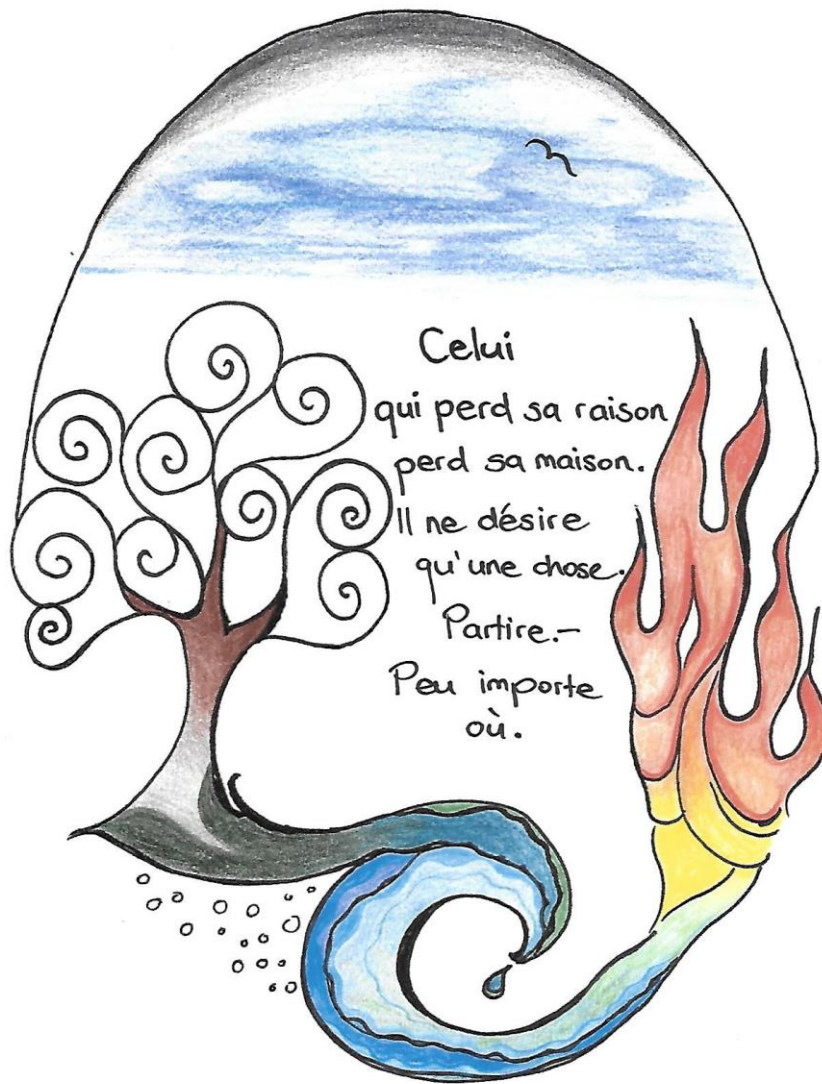 Celui
qui perd sa raison
perd sa maison.
Il ne désire
qu'une chose.
Partire.-
Peu importe
où.